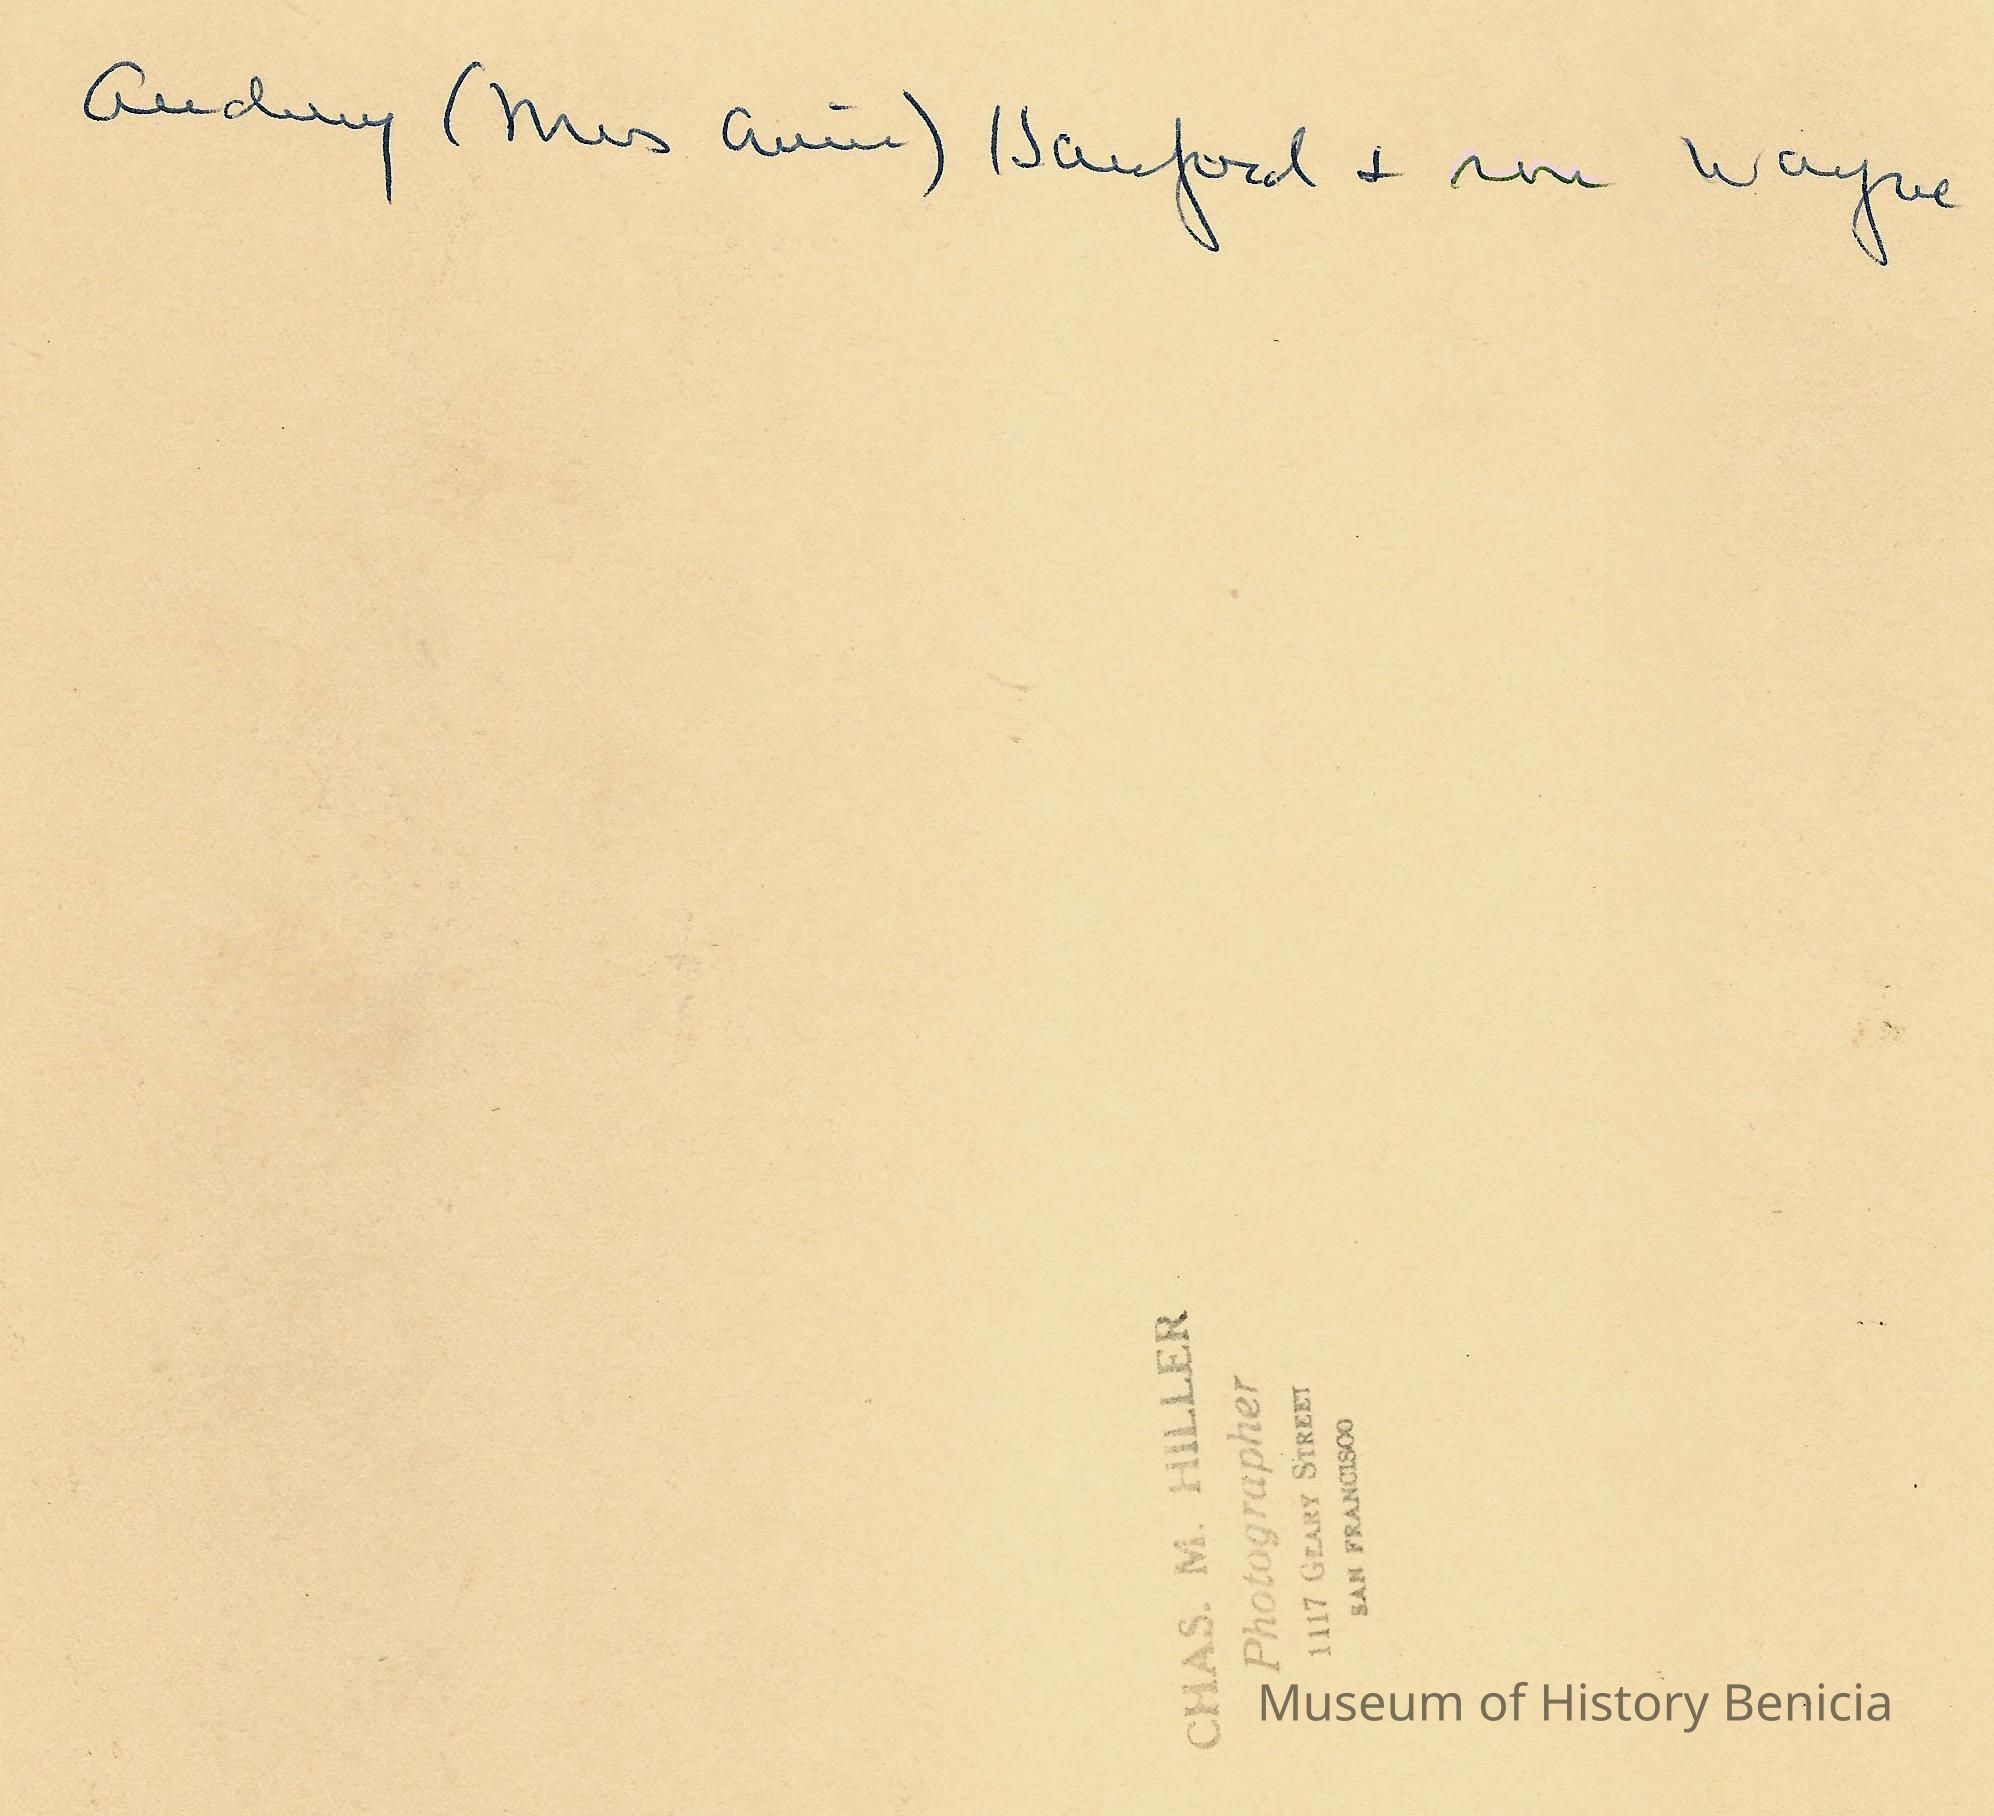 Audrey (Mrs Arvin) Sanford & son Wayne
CHAS. M. HILLER
Photographer
1117 GEARY STREET
SAN FRANCISCO
Museum of History Benicia